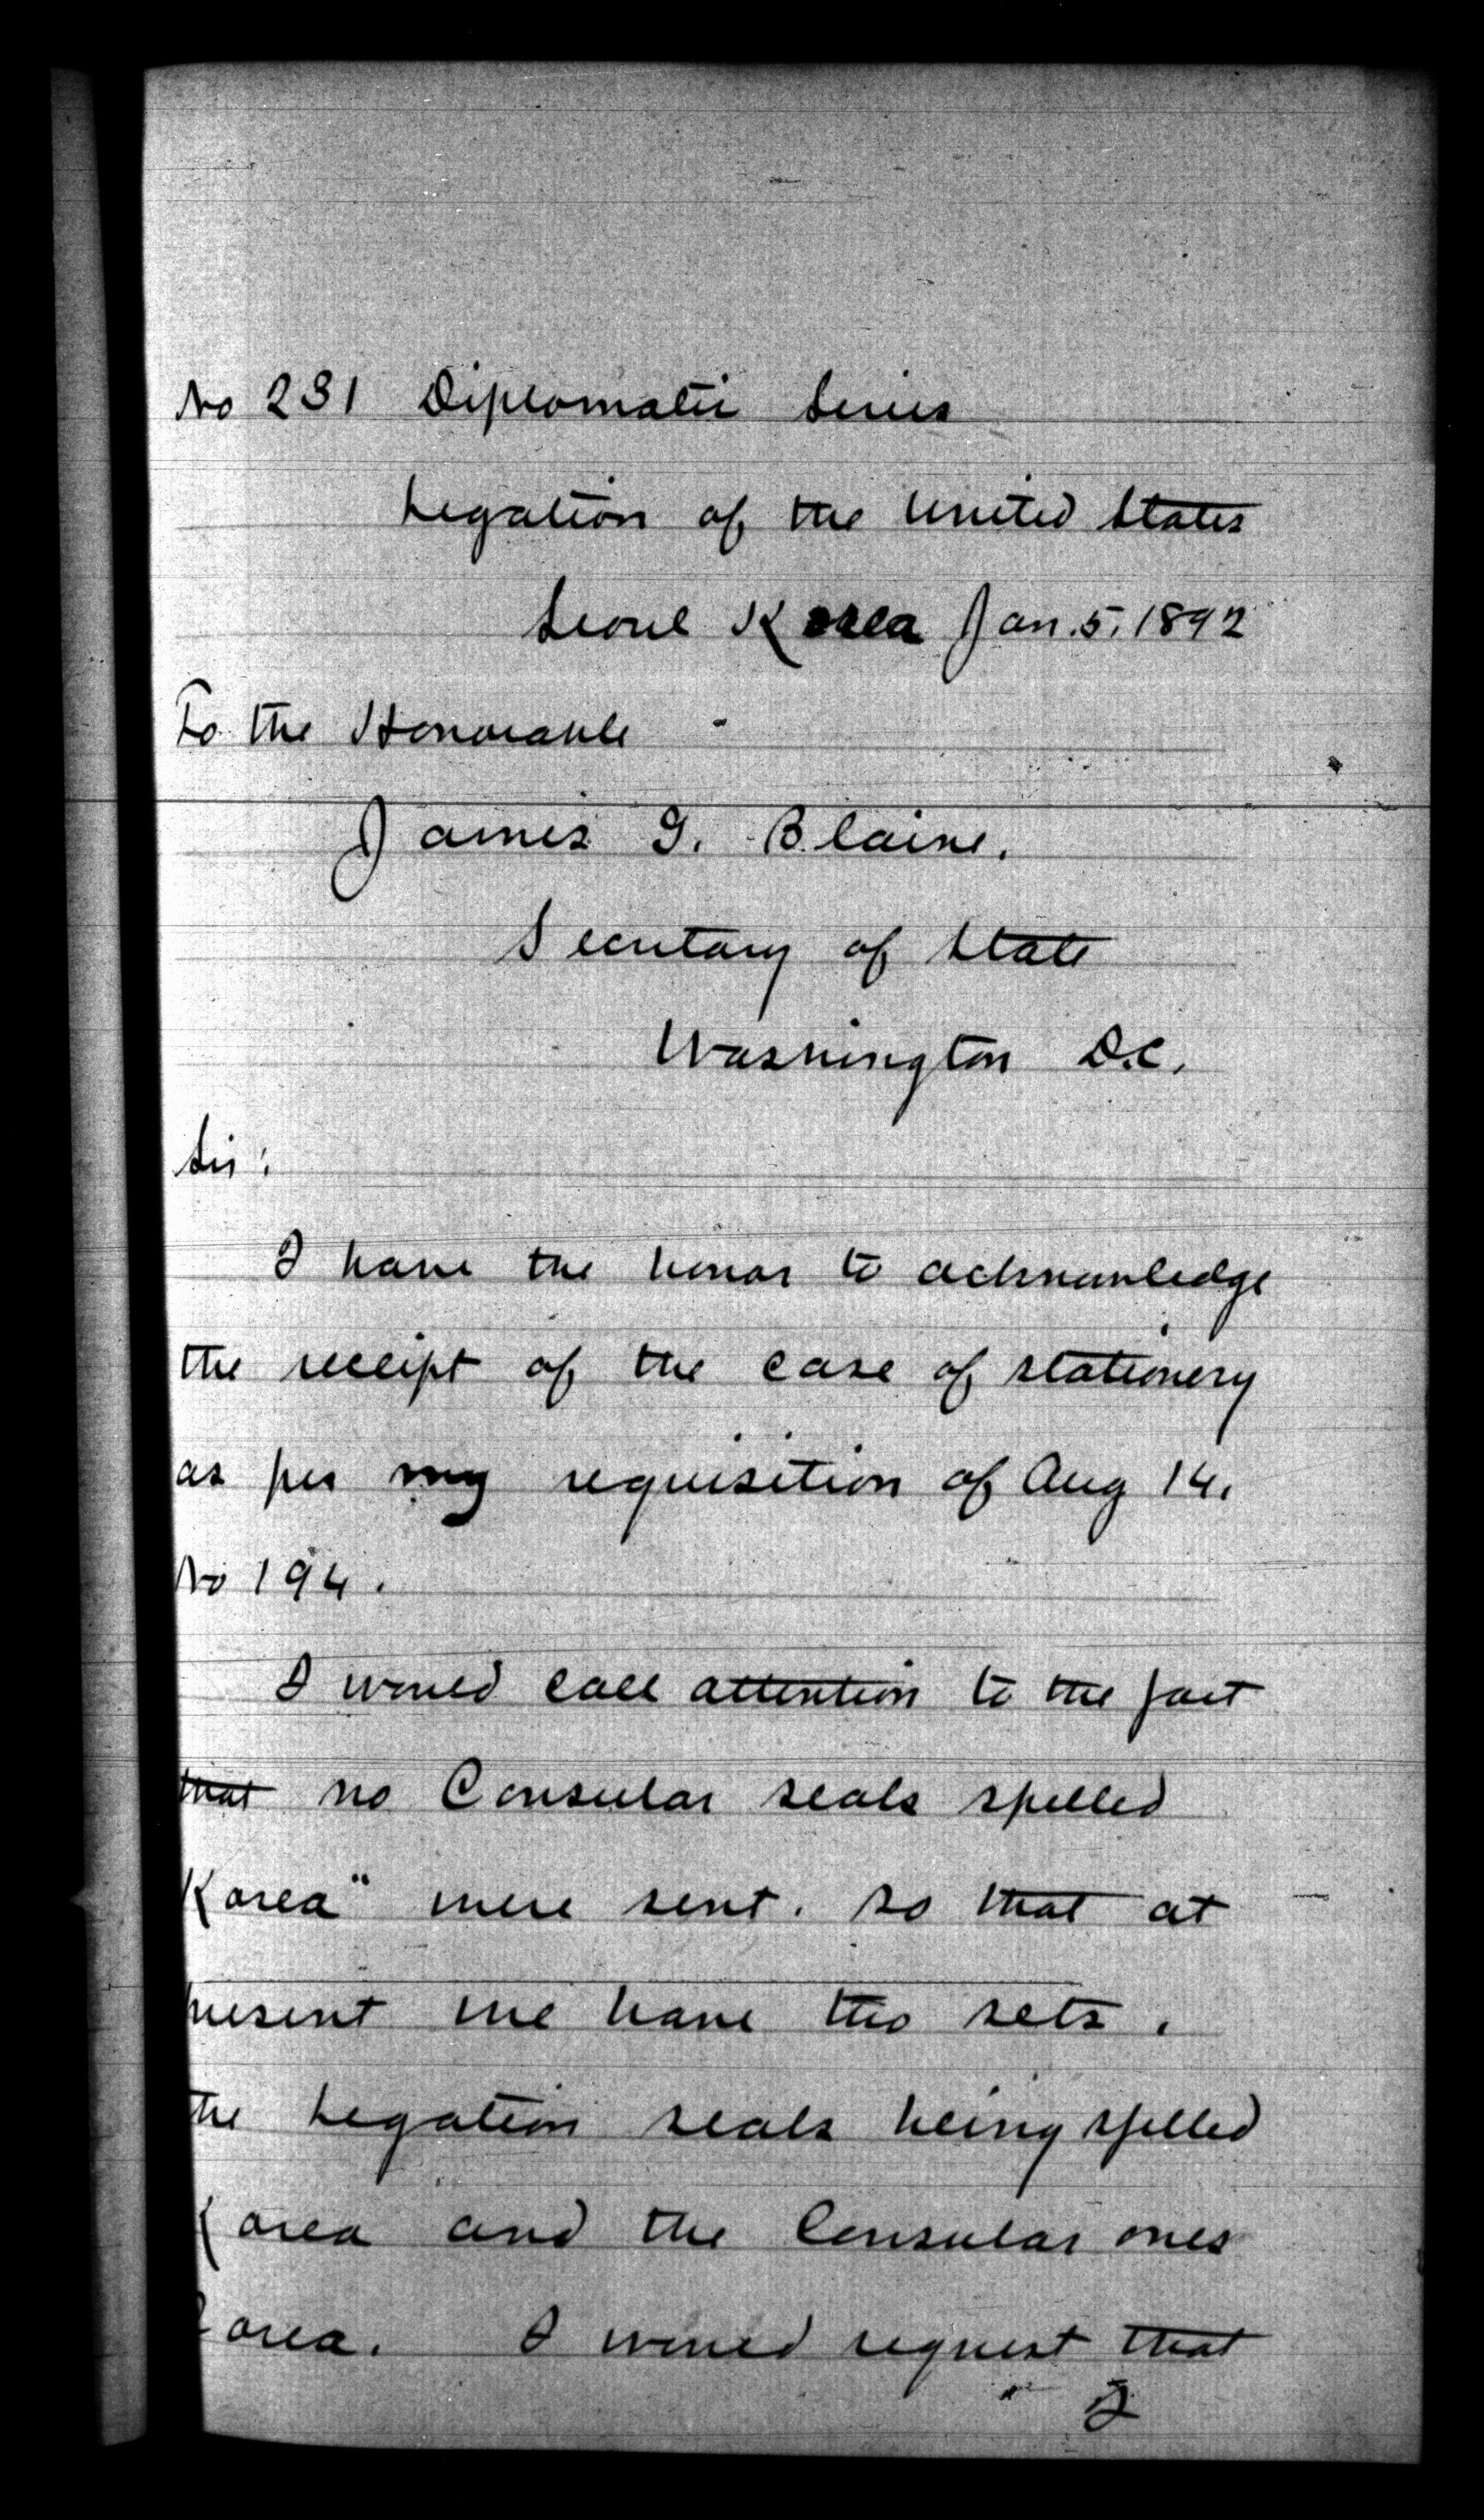 No 231 Diplomatic Series
Legation of the United States
Seoul Korea Jan. 5. 1892
To the Honorable
James G. Blaine.
Secretary of State
Washington D.C.
Sir:
I have the honor to acknowledge
the receipt of the case of stationery
as per my requisition of Aug 14.
No 194.
I would call attention to the fact
that no Consular seals spelled
Korea" were sent. so that at
present we have two sets.
the Legation seals being spelled
Korea and the Consular ones
Corea. I would request that
I